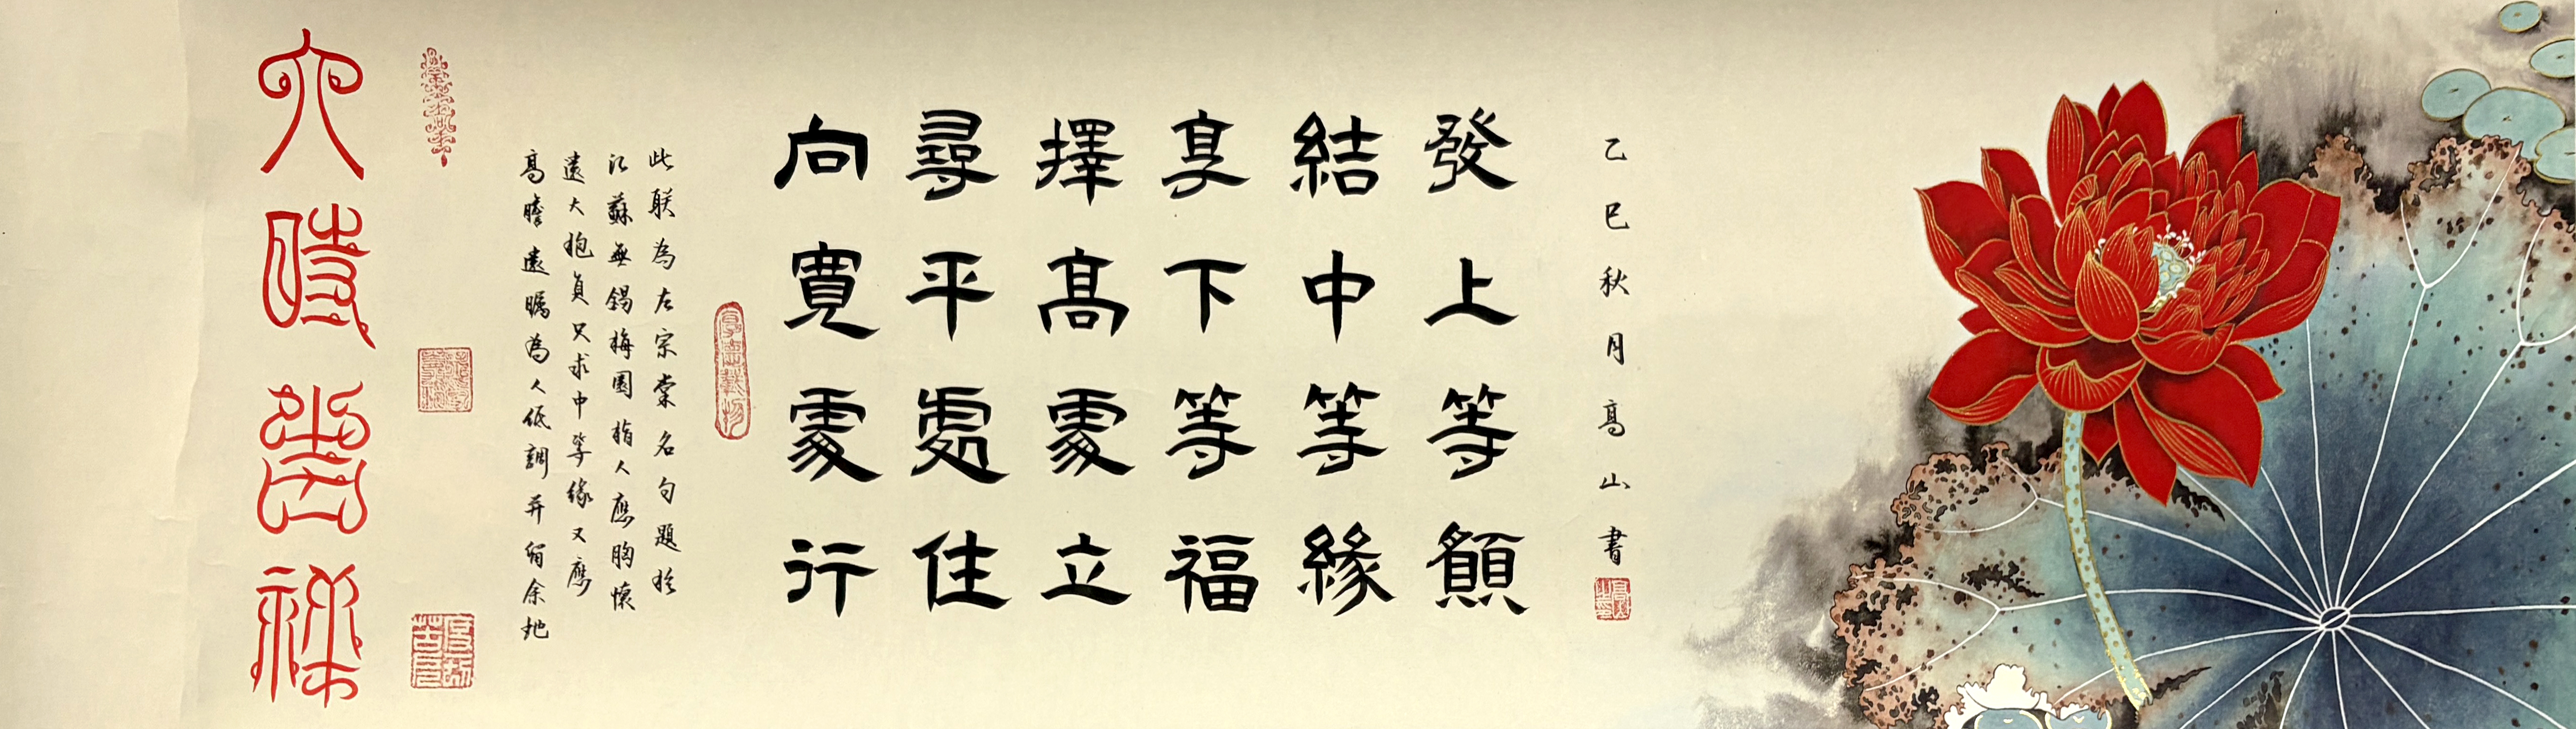 乙巳秋月高山書
發上等願
結中等緣
享下等福
擇高處立
尋平處住
向寬處行
厚德載物
此联為左宗棠名句題於
江蘇無錫梅園指人應胸懷
遠大抱負只求中等緣又應
高瞻遠矚為人低調并留余地
六時吉祥